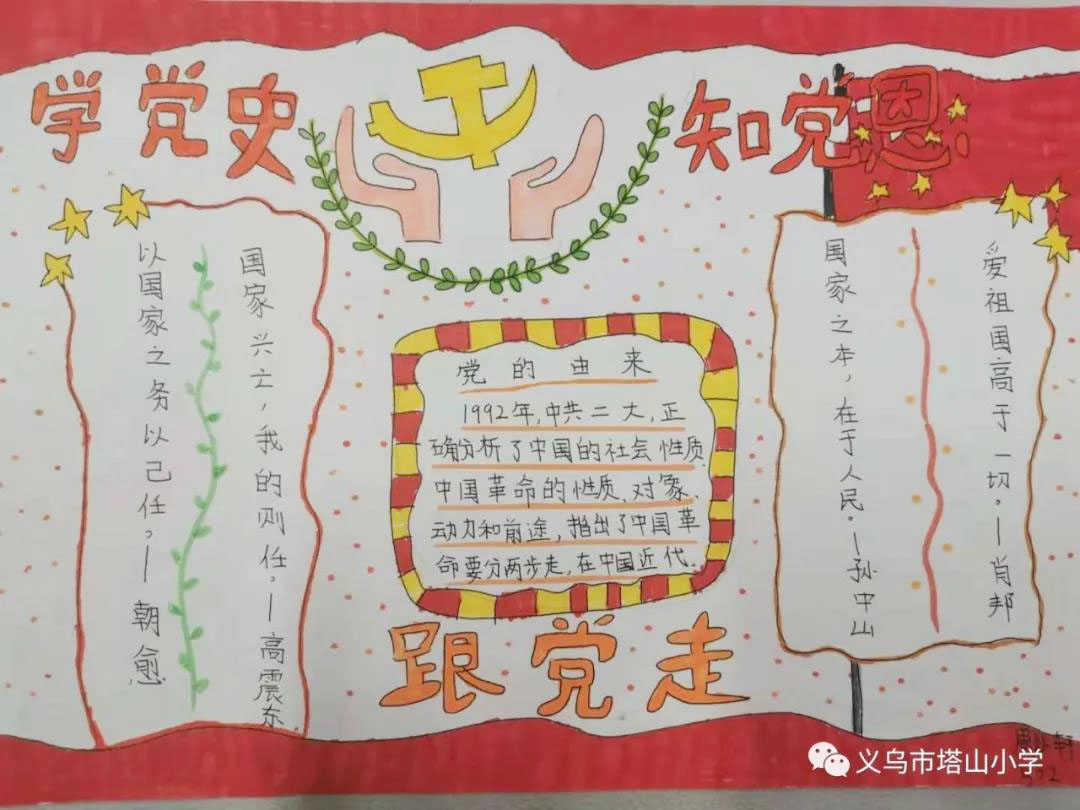 学党史
知党恩
国家兴亡，我的则任。—高震东
以国家之务以己任。—朝愈
党的由来
1992年，中共二大，正
确分析了中国的社会性质、
中国革命的性质、对象、
动力和前途，指出了中国革
命要分两步走，在中国近代.
爱祖国高于一切。—肖邦
国家之本，在于人民。—孙中山
跟党走
义乌市塔山小学